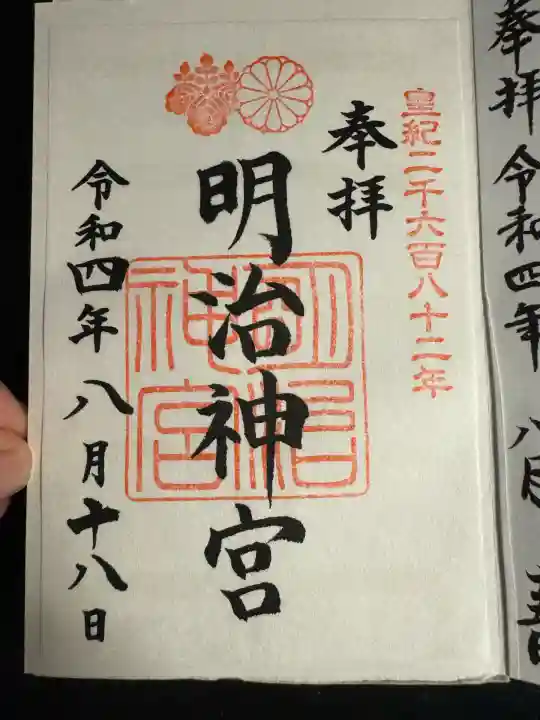 奉拝
令和四年
八月
皇紀二千六百八十二年
奉拝
明治神宮
明治神宮
令和四年八月十八日